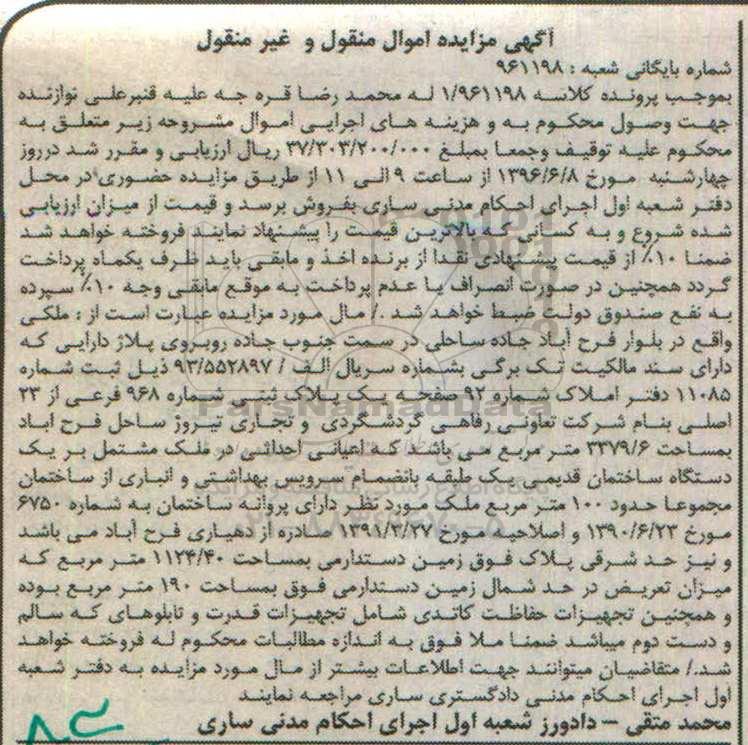 آگهی مزایده اموال منقول و غیر منقول
شماره بایگانی شعبه : ۹۶۱۱۹۸
بموجب پرونده کلاسه ۱/۹۶۱۱۹۸ له محمد رضا قره جه علیه قنبرعلی نوازنده
جهت وصول محکوم به و هزینه های اجرایی اموال مشروحه زیر متعلق به
محکوم علیه توقیف وجمعا بمبلغ ۳۷/۳۰۳/۲۰۰/۰۰۰ ریال ارزیابی و مقرر شد درروز
چهارشنبه مورخ ۱۳۹۶/۶/۸ از ساعت ۹ الی ۱۱ از طریق مزایده حضوری در محل
دفتر شعبه اول اجرای احکام مدنی ساری بفروش برسد و قیمت از میزان ارزیابی
شده شروع و به کسانی که بالاترین قیمت را پیشنهاد نمایند فروخته خواهد شد
ضمنا ۱۰٪ از قیمت پیشنهادی نقدا از برنده اخذ و مابقی باید ظرف یکماه پرداخت
گردد همچنین در صورت انصراف یا عدم پرداخت به موقع مابقی وجه ۱۰٪ سپرده
به نفع صندوق دولت ضبط خواهد شد ./ مال مورد مزایده عبارت است از : ملکی
واقع در بلوار فرح آباد جاده ساحلی در سمت جنوب جاده روبروی پلاژ دارایی که
دارای سند مالکیت تک برگی بشماره سریال الف / ۹۳/۵۵۲۸۹۷ ذیل ثبت شماره
۱۱۰۸۵ دفتر املاک شماره ۹۲ صفحه یک پلاک ثبتی شماره ۹۶۸ فرعی از ۲۳
اصلی بنام شرکت تعاونی رفاهی گردشگردی و تجاری تیروژ ساحل فرح اباد
بمساحت ۳۳۷۹/۶ متر مربع می باشد که اعیانی احداثی در ملک مشتمل بر یک
دستگاه ساختمان قدیمی یک طبقه بانضمام سرویس بهداشتی و انباری از ساختمان
مجموعا حدود ۱۰۰ متر مربع ملک مورد نظر دارای پروانه ساختمان به شماره ۶۷۵۰
مورخ ۱۳۹۰/۶/۲۳ و اصلاحیه مورخ ۱۳۹۱/۳/۲۷ صادره از دهیاری فرح آباد می باشد
و نیز حد شرقی پلاک فوق زمین دستدارمی بمساحت ۱۱۲۴/۴۰ متر مربع که
میزان تعریض در حد شمال زمین دستدارمی فوق بمساحت ۱۹۰ متر مربع بوده
و همچنین تجهیزات حفاظت کاتدی شامل تجهیزات قدرت و تابلوهای که سالم
و دست دوم میباشد ضمنا ملا فوق به اندازه مطالبات محکوم له فروخته خواهد
شد./ متقاضیان میتوانند جهت اطلاعات بیشتر از مال مورد مزایده به دفتر شعبه
اول اجرای احکام مدنی دادگستری ساری مراجعه نمایند
محمد متقی – دادورز شعبه اول اجرای احکام مدنی ساری
ParsNamadData